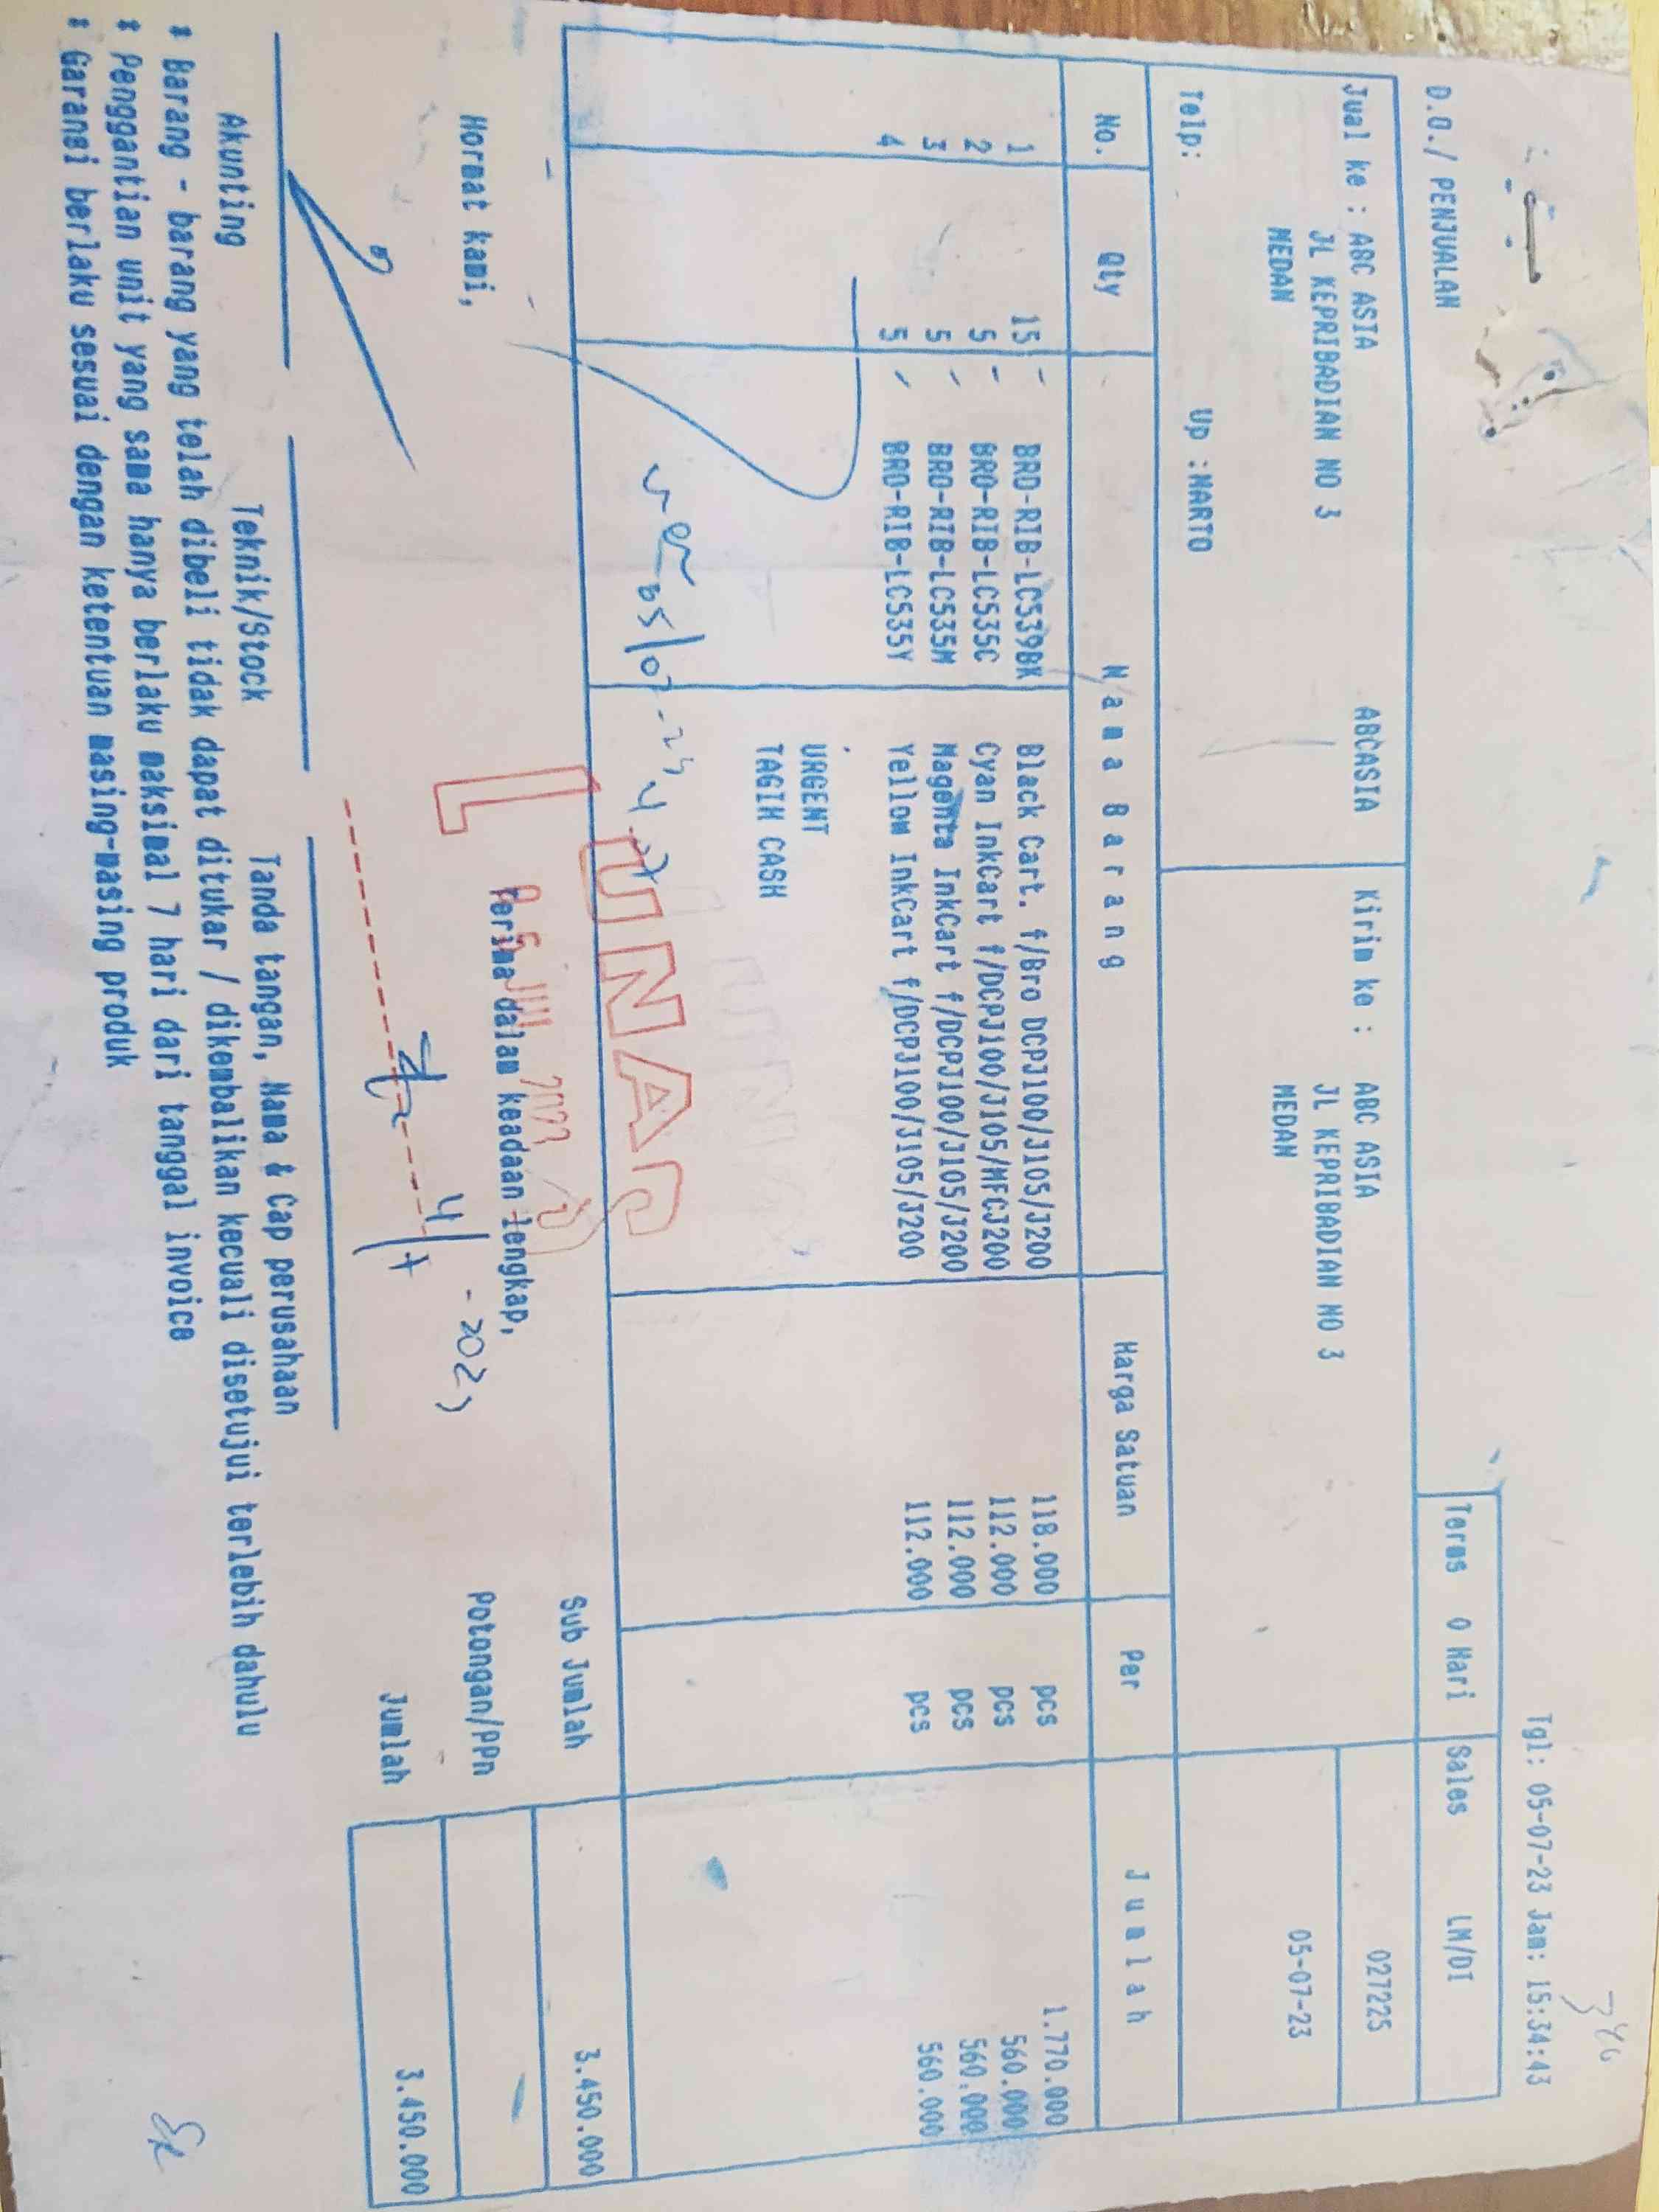 Tgl: 05-07-23 Jam: 15:34:43
D.O./ PENJUALAN
Terms 0 Hari Sales LM/DI
Jual ke : ABC ASIA ABCASIA Kirim ke : ABC ASIA 027225
JL KEPRIBADIAN NO 3 JL KEPRIBADIAN NO 3
MEDAN MEDAN 05-07-23
Telp: Up :MARTO
No. Qty Nama Barang Harga Satuan Per Jumlah
1 15 BRD-RIB-LC539BK Black Cart. f/Bro DCPJ100/J105/J200 118.000 pcs 1.770.000
2 5 BRD-RIB-LC535C Cyan InkCart f/DCPJ100/J105/MFCJ200 112.000 pcs 560.000
3 5 BRD-RIB-LC535M Magenta InkCart f/DCPJ100/J105/J200 112.000 pcs 560.000
4 5 BRD-RIB-LC535Y Yellow InkCart f/DCPJ100/J105/J200 112.000 pcs 560.000
URGENT
TAGIH CASH
LUNAS
Sub Jumlah 3.450.000
Hormat kami, Terima dalam keadaan lengkap,
Potongan/PPn
Jumlah 3.450.000
Akunting Teknik/Stock Tanda tangan, Nama & Cap perusahaan
* Barang - barang yang telah dibeli tidak dapat ditukar / dikembalikan kecuali disetujui terlebih dahulu
* Penggantian unit yang sama hanya berlaku maksimal 7 hari dari tanggal invoice
* Garansi berlaku sesuai dengan ketentuan masing-masing produk